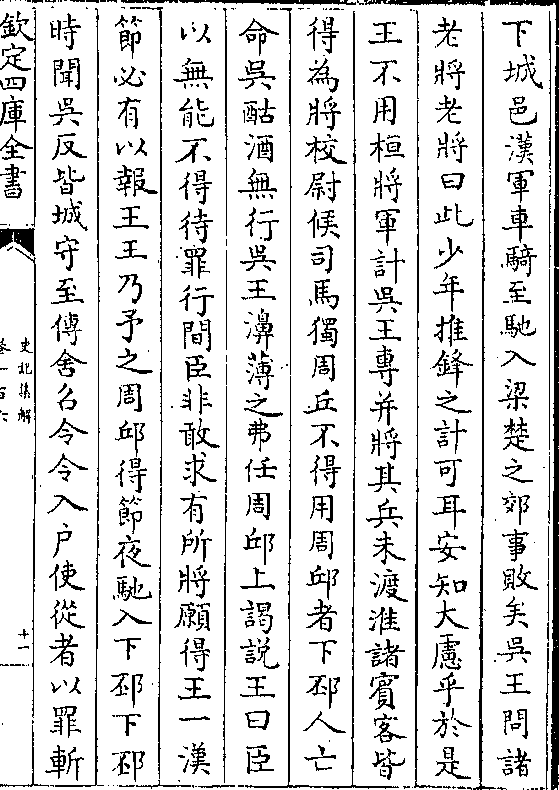 下城邑漢軍車騎至馳入梁楚之郊事敗矣吳王問諸
老將老將曰此少年推鋒之計可耳安知大慮乎於是
王不用桓將軍計吳王專并將其兵未渡淮諸賓客皆
得為將校尉候司馬獨周丘不得用周邱者下邳人亡
命吳酤酒無行吳王濞薄之弗任周邱上謁說王曰臣
以無能不得待罪行間臣非敢求有所將願得王一漢
節必有以報王王乃予之周邱得節夜馳入下邳下邳
時聞吳反皆城守至傳舍召令令入户使從者以罪斬
欽定四庫全書
史記集解
卷一百六
十一